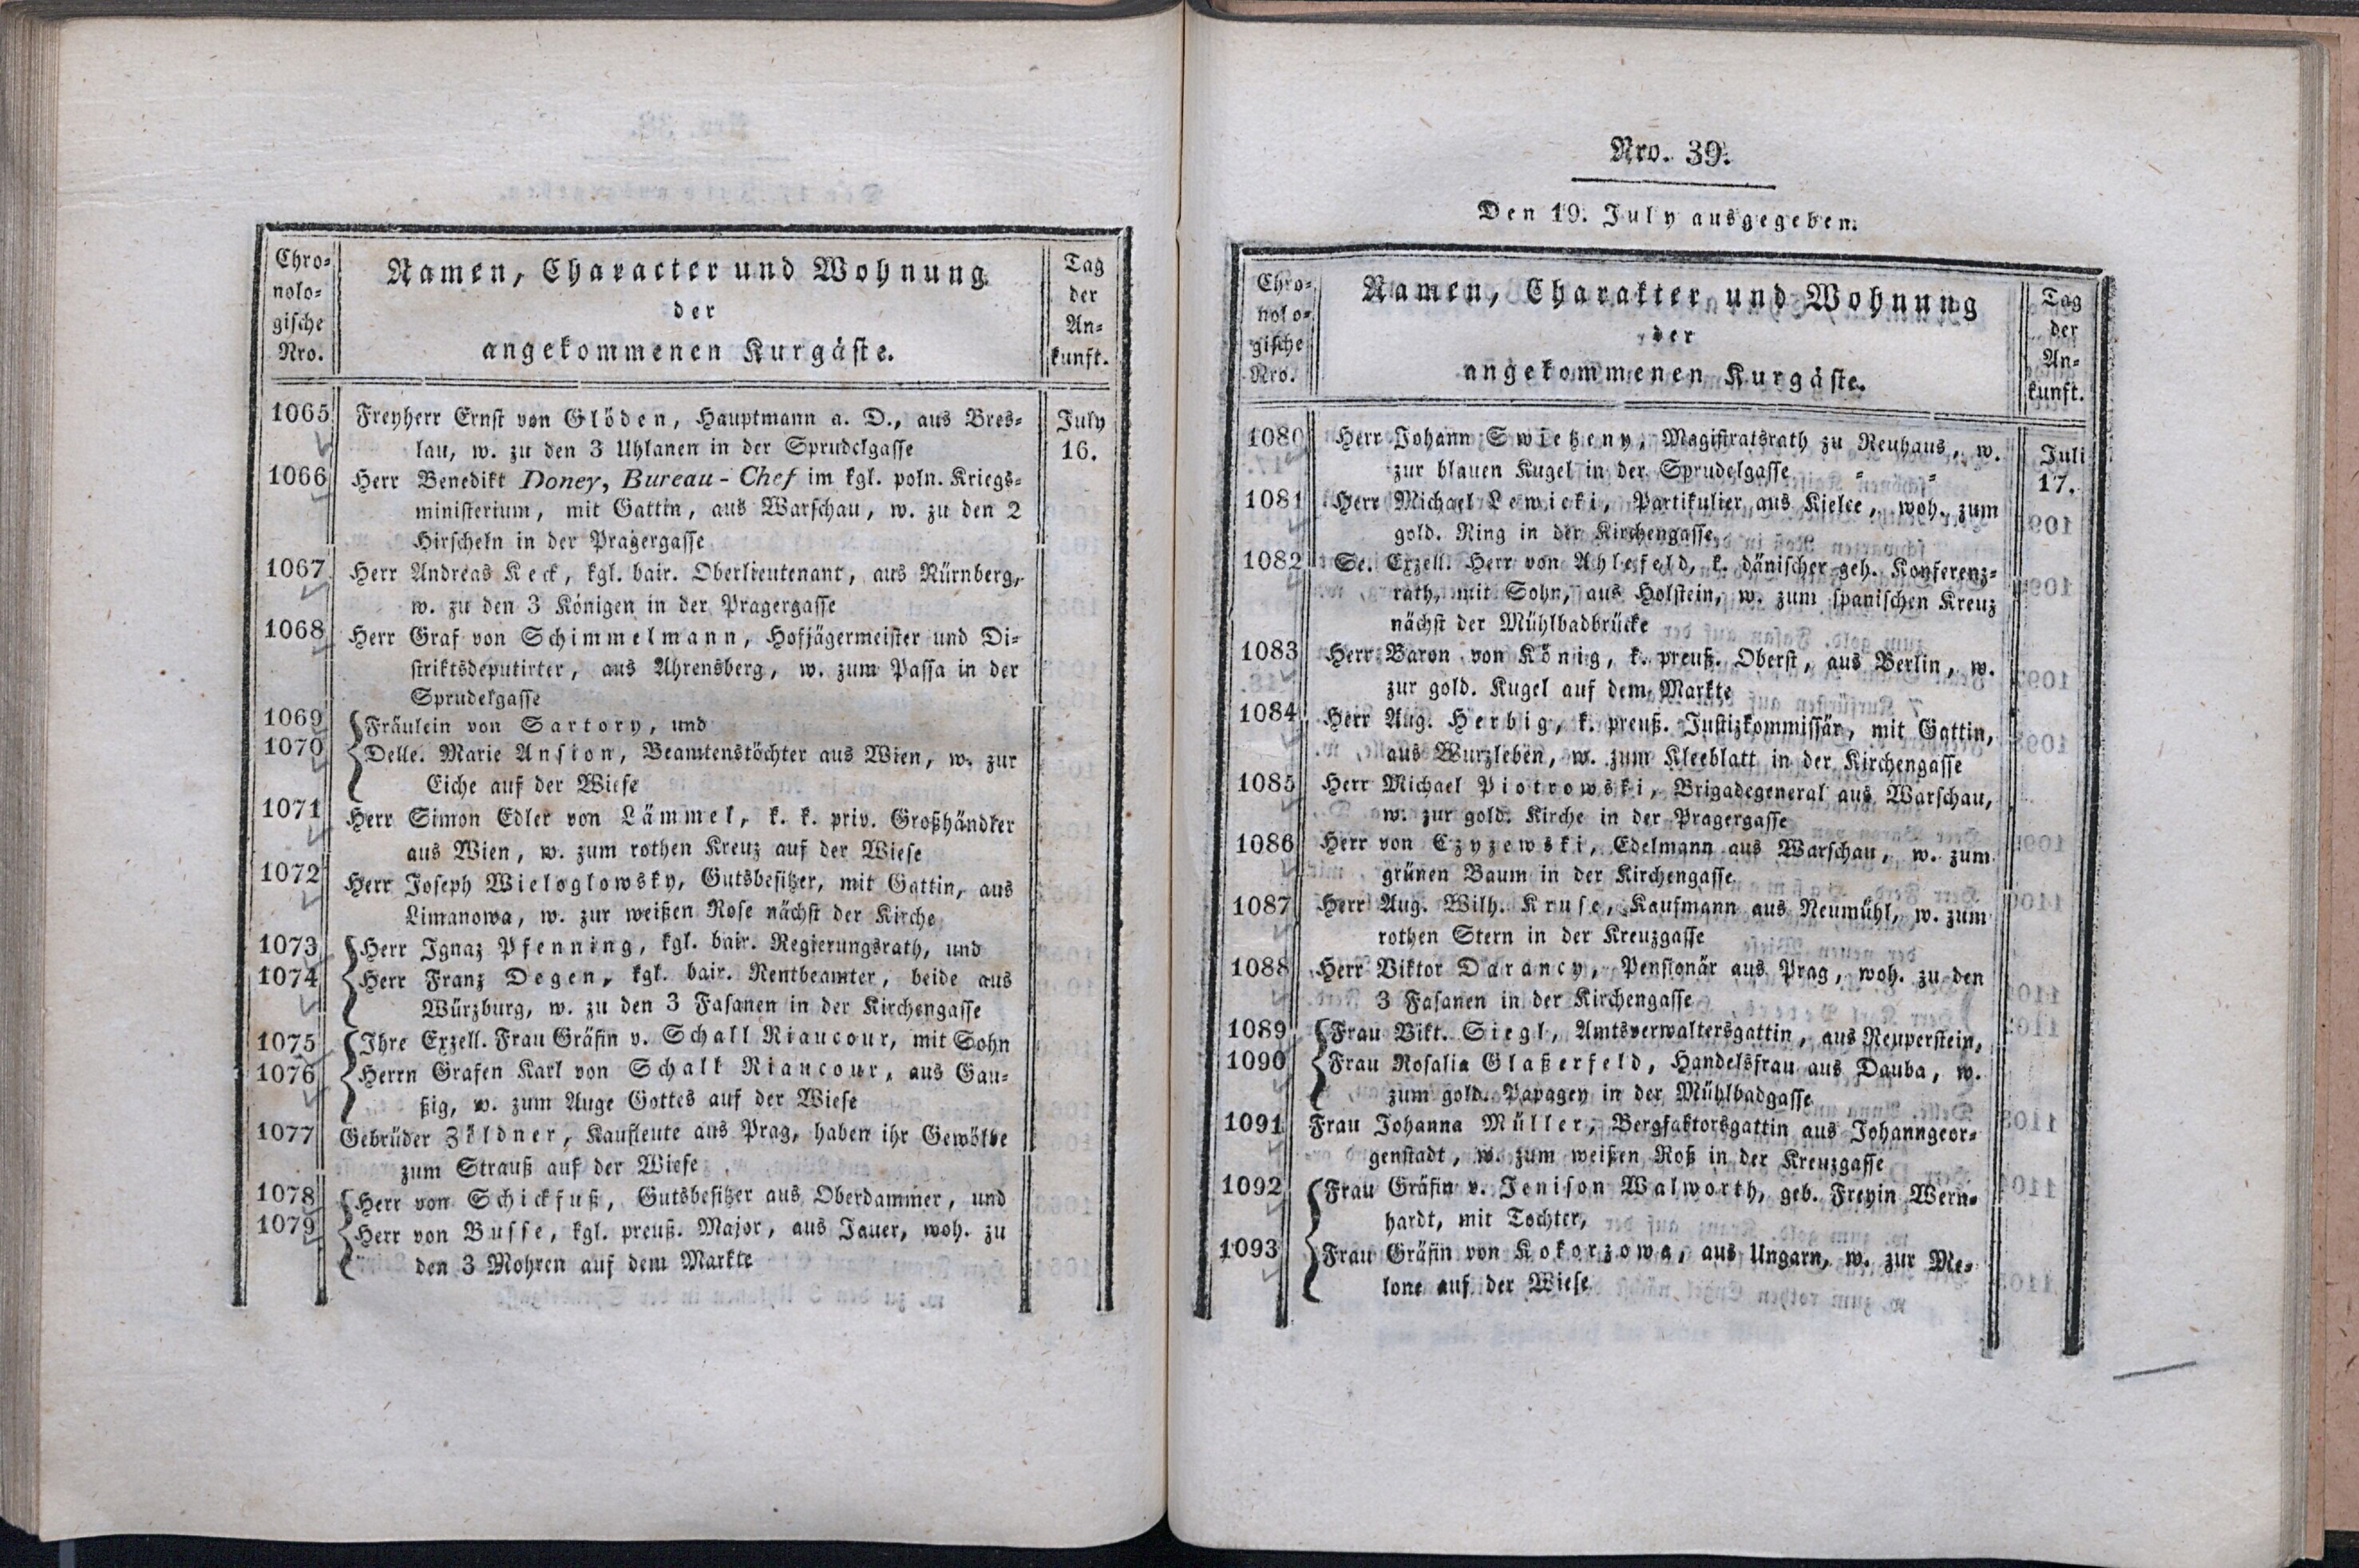 Chro-
nolo-
gische
Nro.
Namen, Character und Wohnung
der
angekommenen Kurgäste.
Tag
der
An-
kunft.
July
16.
1065 Freyherr Ernst von Glöden, Hauptmann a. D., aus Bres-
lau, w. zu den 3 Uhlanen in der Sprudelgasse
1066 Herr Benedikt Doney, Bureau-Chef im kgl. poln. Kriegs-
ministerium, mit Gattin, aus Warschau, w. zu den 2
Hirscheln in der Pragergasse
1067 Herr Andreas Keck, kgl. bair. Oberlieutenant, aus Nürnberg,
w. zu den 3 Königen in der Pragergasse
1068 Herr Graf von Schimmelmann, Hofjägermeister und Di-
striktsdeputirter, aus Ahrensberg, w. zum Passa in der
Sprudelgasse
1069 Fräulein von Sartory, und
1070 Delle. Marie Ansion, Beamtenstöchter aus Wien, w. zur
Eiche auf der Wiese
1071 Herr Simon Edler von Lämmel, k. k. priv. Großhändler
aus Wien, w. zum rothen Kreuz auf der Wiese
1072 Herr Joseph Wieloglowsky, Gutsbesitzer, mit Gattin, aus
Limanowa, w. zur weißen Rose nächst der Kirche
1073 Herr Ignaz Pfenning, kgl. bair. Regierungsrath, und
1074 Herr Franz Degen, kgl. bair. Rentbeamter, beide aus
Würzburg, w. zu den 3 Fasanen in der Kirchengasse
1075 Ihre Exzell. Frau Gräfin v. Schall Riaucour, mit Sohn
1076 Herrn Grafen Karl von Schall Riaucour, aus Gau-
ßig, w. zum Auge Gottes auf der Wiese
1077 Gebrüder Zöldner, Kaufleute aus Prag, haben ihr Gewölbe
zum Strauß auf der Wiese
1078 Herr von Schickfuß, Gutsbesitzer aus Oberdammer, und
1079 Herr von Busse, kgl. preuß. Major, aus Jauer, woh. zu
den 3 Mohren auf dem Markte
Nro. 39.
Den 19. July ausgegeben.
Chro-
nolo-
gische
Nro.
Namen, Charakter und Wohnung
der
angekommenen Kurgäste.
Tag
der
An-
kunft.
Juli
17.
1080 Herr Johann Swietzeny, Magistratsrath zu Neuhaus, w.
zur blauen Kugel in der Sprudelgasse
1081 Herr Michael Lewicki, Partikulier aus Kielce, woh. zum
gold. Ring in der Kirchengasse
1082 Se. Exzell. Herr von Ahlefeld, k. dänischer geh. Konferenz-
rath, mit Sohn, aus Holstein, w. zum spanischen Kreuz
nächst der Mühlbadbrücke
1083 Herr Baron von König, k. preuß. Oberst, aus Berlin, w.
zur gold. Kugel auf dem Markte
1084 Herr Aug. Herbig, k. preuß. Justizkommissär, mit Gattin,
aus Wurzleben, w. zum Kleeblatt in der Kirchengasse
1085 Herr Michael Piotrowski, Brigadegeneral aus Warschau,
w. zur gold. Kirche in der Pragergasse
1086 Herr von Czyzewski, Edelmann aus Warschau, w. zum
grünen Baum in der Kirchengasse
1087 Herr Aug. Wilh. Kruse, Kaufmann aus Neumühl, w. zum
rothen Stern in der Kreuzgasse
1088 Herr Viktor Darancy, Pensionär aus Prag, woh. zu den
3 Fasanen in der Kirchengasse
1089 Frau Vikt. Siegl, Amtsverwaltersgattin, aus Neuperstein,
1090 Frau Rosalia Glaßerfeld, Handelsfrau aus Dauba, w.
zum gold. Papagey in der Mühlbadgasse
1091 Frau Johanna Müller, Bergfaktorsgattin aus Johanngeor-
genstadt, w. zum weißen Roß in der Kreuzgasse
1092 Frau Gräfin v. Jenison Walworth, geb. Freyin Wern-
hardt, mit Tochter,
1093 Frau Gräfin von Kokorzowa, aus Ungarn, w. zur Me-
lone auf der Wiese